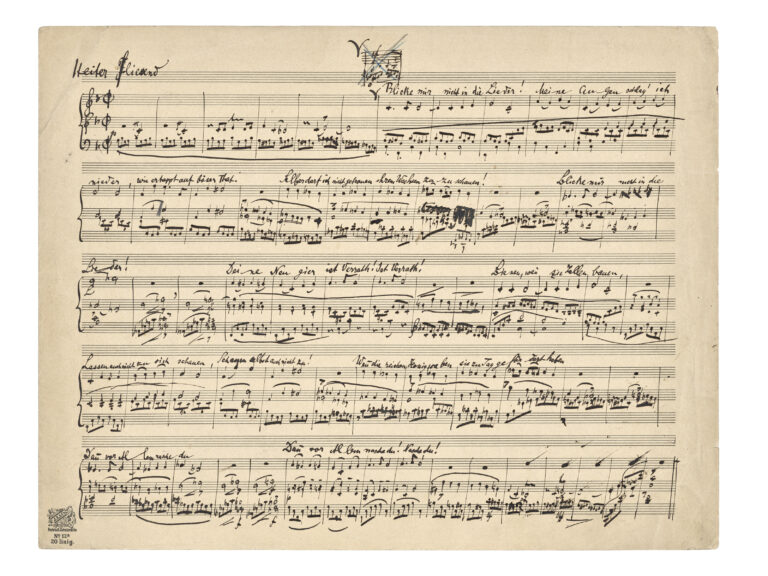 Heiter fließend
Blicke mir nicht in die Lieder! Meine Augen schlag' ich
nieder, wie ertappt auf böser That. Selber darf ich nicht getrauen ihrem Wachsen zuzuschauen! Blicke mir nicht in die
Lieder! Deine Neugier ist Verrath! Ist Verrath! Bienen, wenn sie Zellen bauen,
Lassen auch nicht zu sich schauen, Schauen selbst auch nicht zu! Wenn die reichen Honigwaben sie zu Tag gefördert haben
Dann vor Allen nasche du Dann vor Allen nasche du! Nasche du!
20 linig.